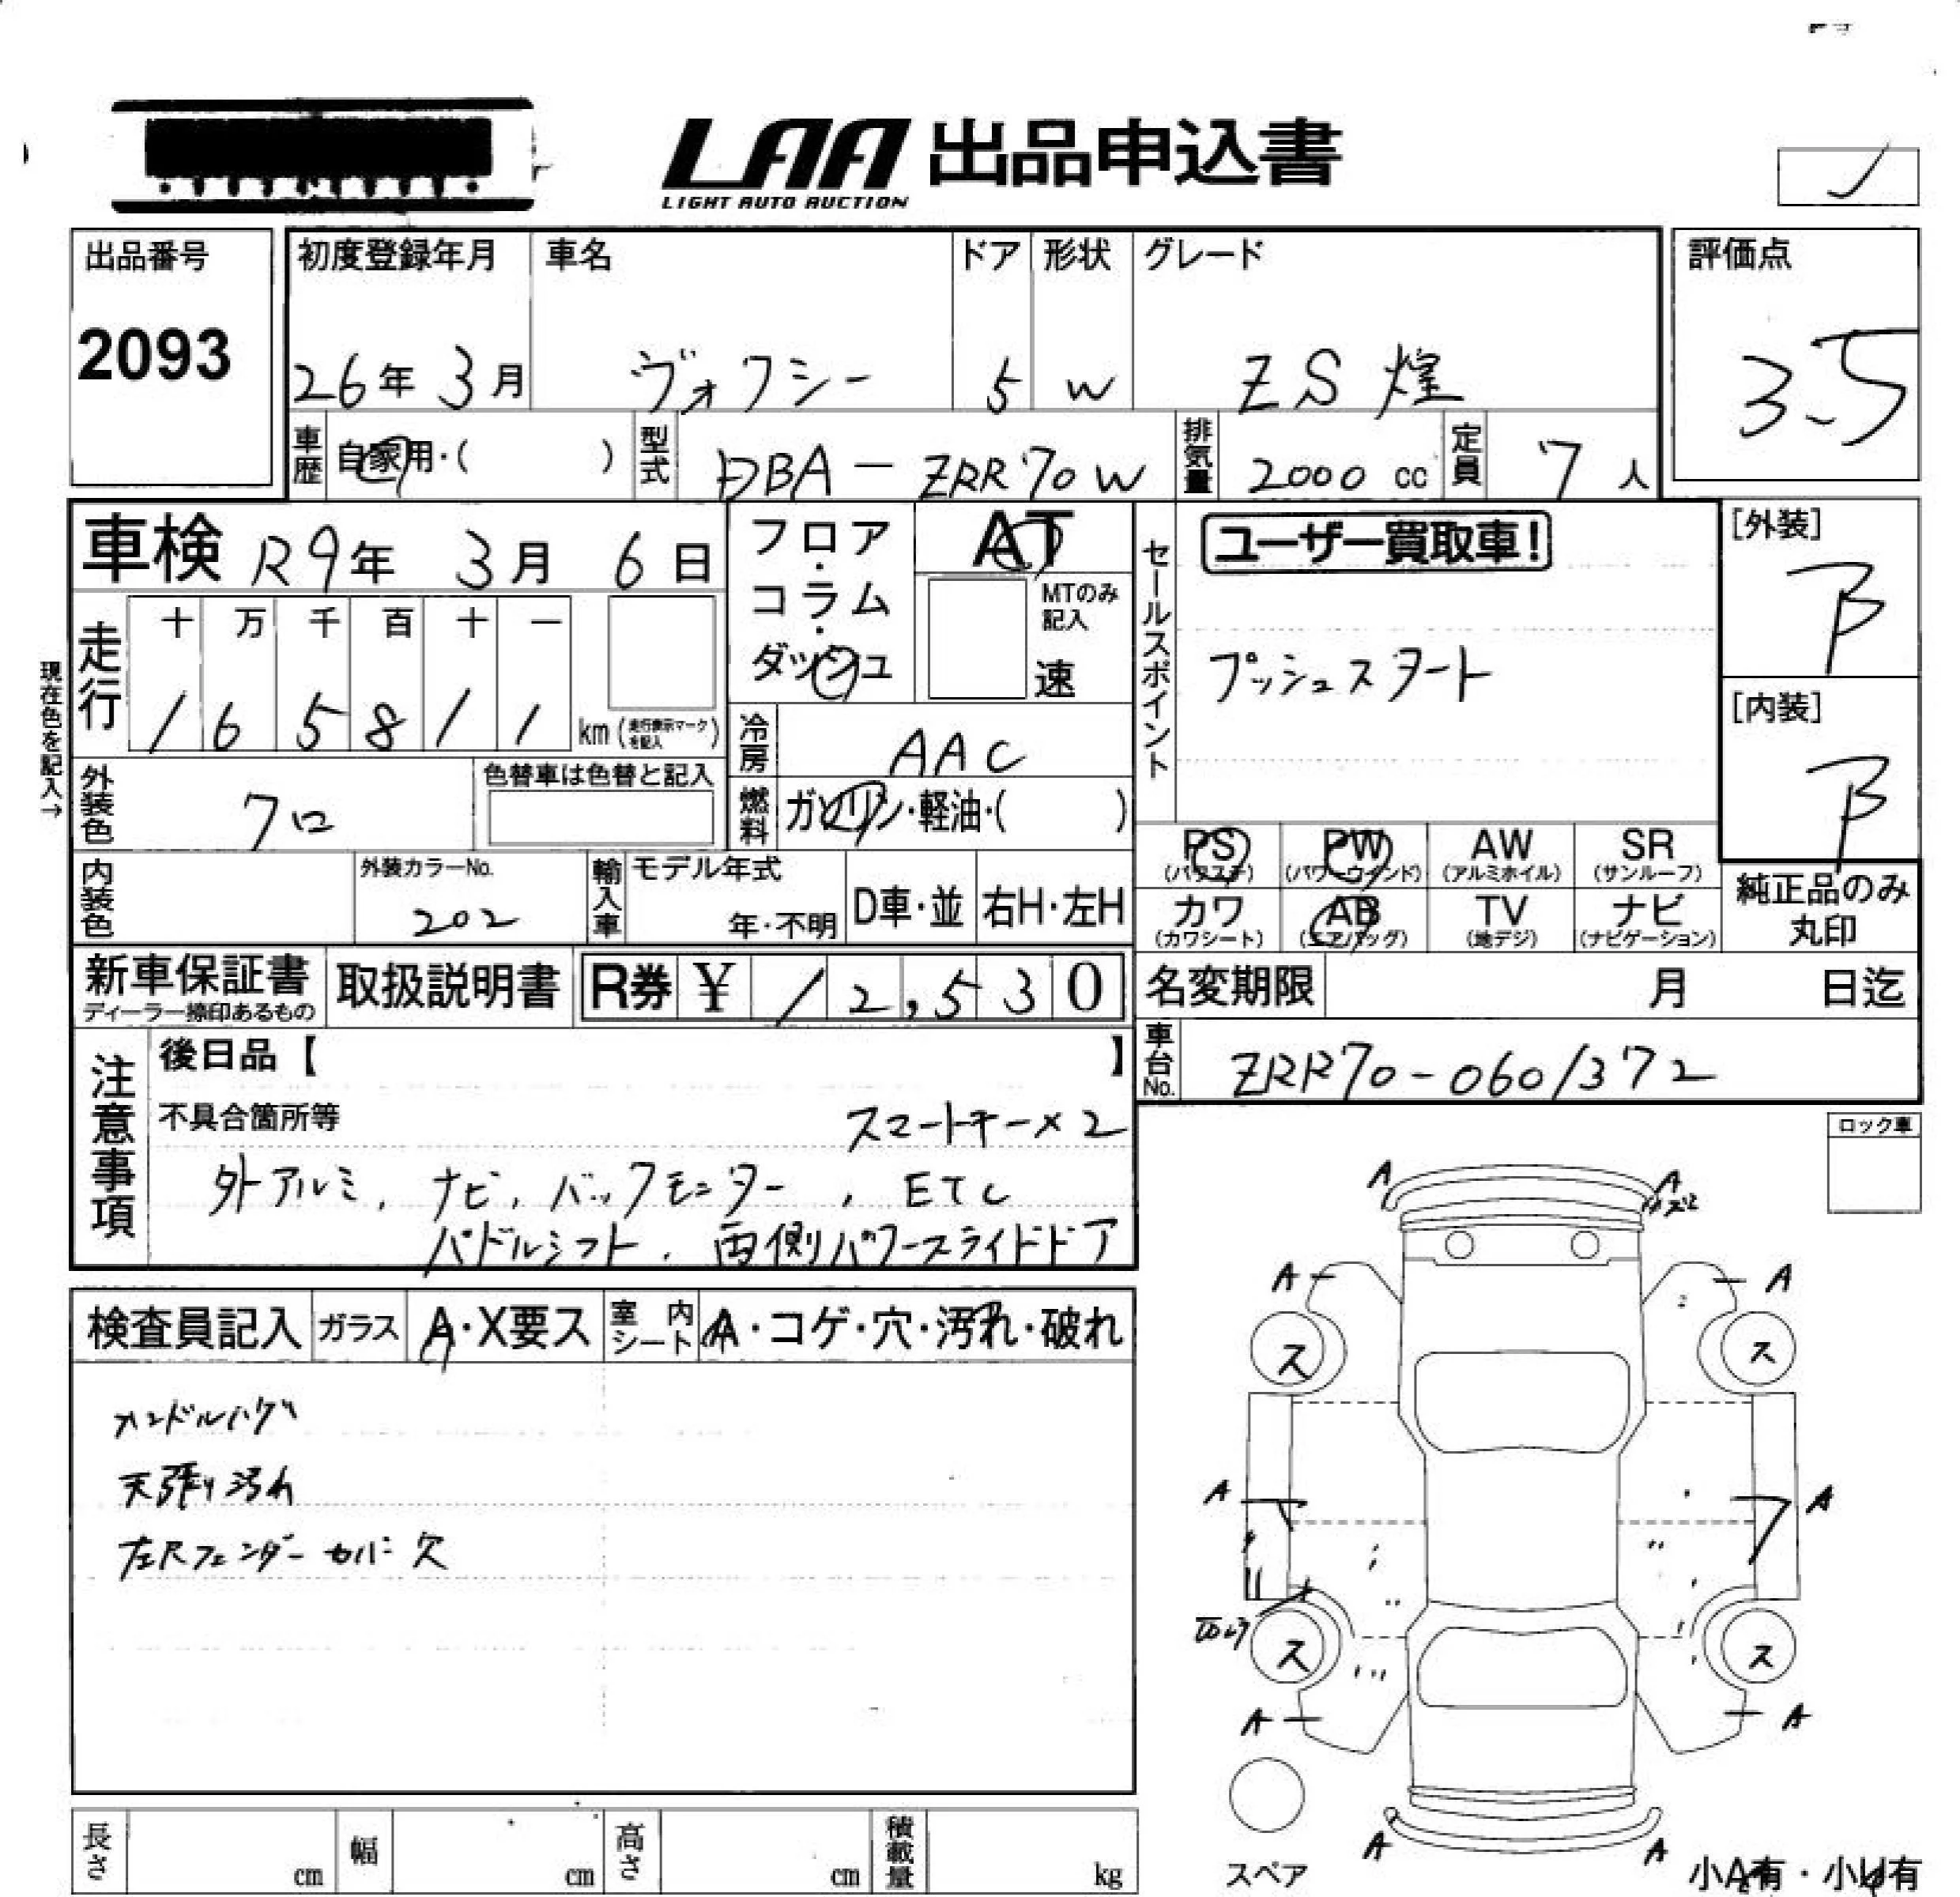 LAA 出品申込書
LIGHT AUTO AUCTION
出品番号
2093
初度登録年月
26年 3月
車名
ヴォクシー
ドア
5
形状
W
グレード
ZS 煌
評価点
3.5
車歴 自家用・( )
型式 DBA-ZRR70W
排気量 2000 cc
定員 7人
車検 R9年 3月 6日
現在色を記入→
走行
十 万 千 百 十 一
1 6 5 8 1 1 km (走行表示マークを記入)
フロア・コラム・ダッシュ
AT
MTのみ記入
速
冷房 AAC
燃料 ガソリン・軽油・( )
外装色 クロ
色替車は色替と記入
内装色
外装カラーNo.
202
輸入車
モデル年式
年・不明
D車・並
右H・左H
セールスポイント
ユーザー買取車!
プッシュスタート
[外装]
B
[内装]
B
PS (パワステ)
PW (パワーウインド)
AW (アルミホイル)
SR (サンルーフ)
カワ (カワシート)
AB (エアバッグ)
TV (地デジ)
ナビ (ナビゲーション)
純正品のみ丸印
新車保証書
ディーラー捺印あるもの
取扱説明書
R券 ¥ 12,530
名変期限 月 日迄
車台No. ZRR70-0601372
注意事項
後日品【 】
不具合箇所等
スマートキー×2
外アルミ, ナビ, バックモニター, ETC
パドルシフト, 両側パワースライドドア
検査員記入
ガラス A・X要ス
室内シート A・コゲ・穴・汚れ・破れ
ハンドルハゲ
天張り汚れ
左Rフェンダーカバー欠
ロック車
A
A
A
A
ス
ス
A
A
ス
ス
A
A
A
A
スペア
小A有・小U有
長さ cm
幅 cm
高さ cm
積載量 kg